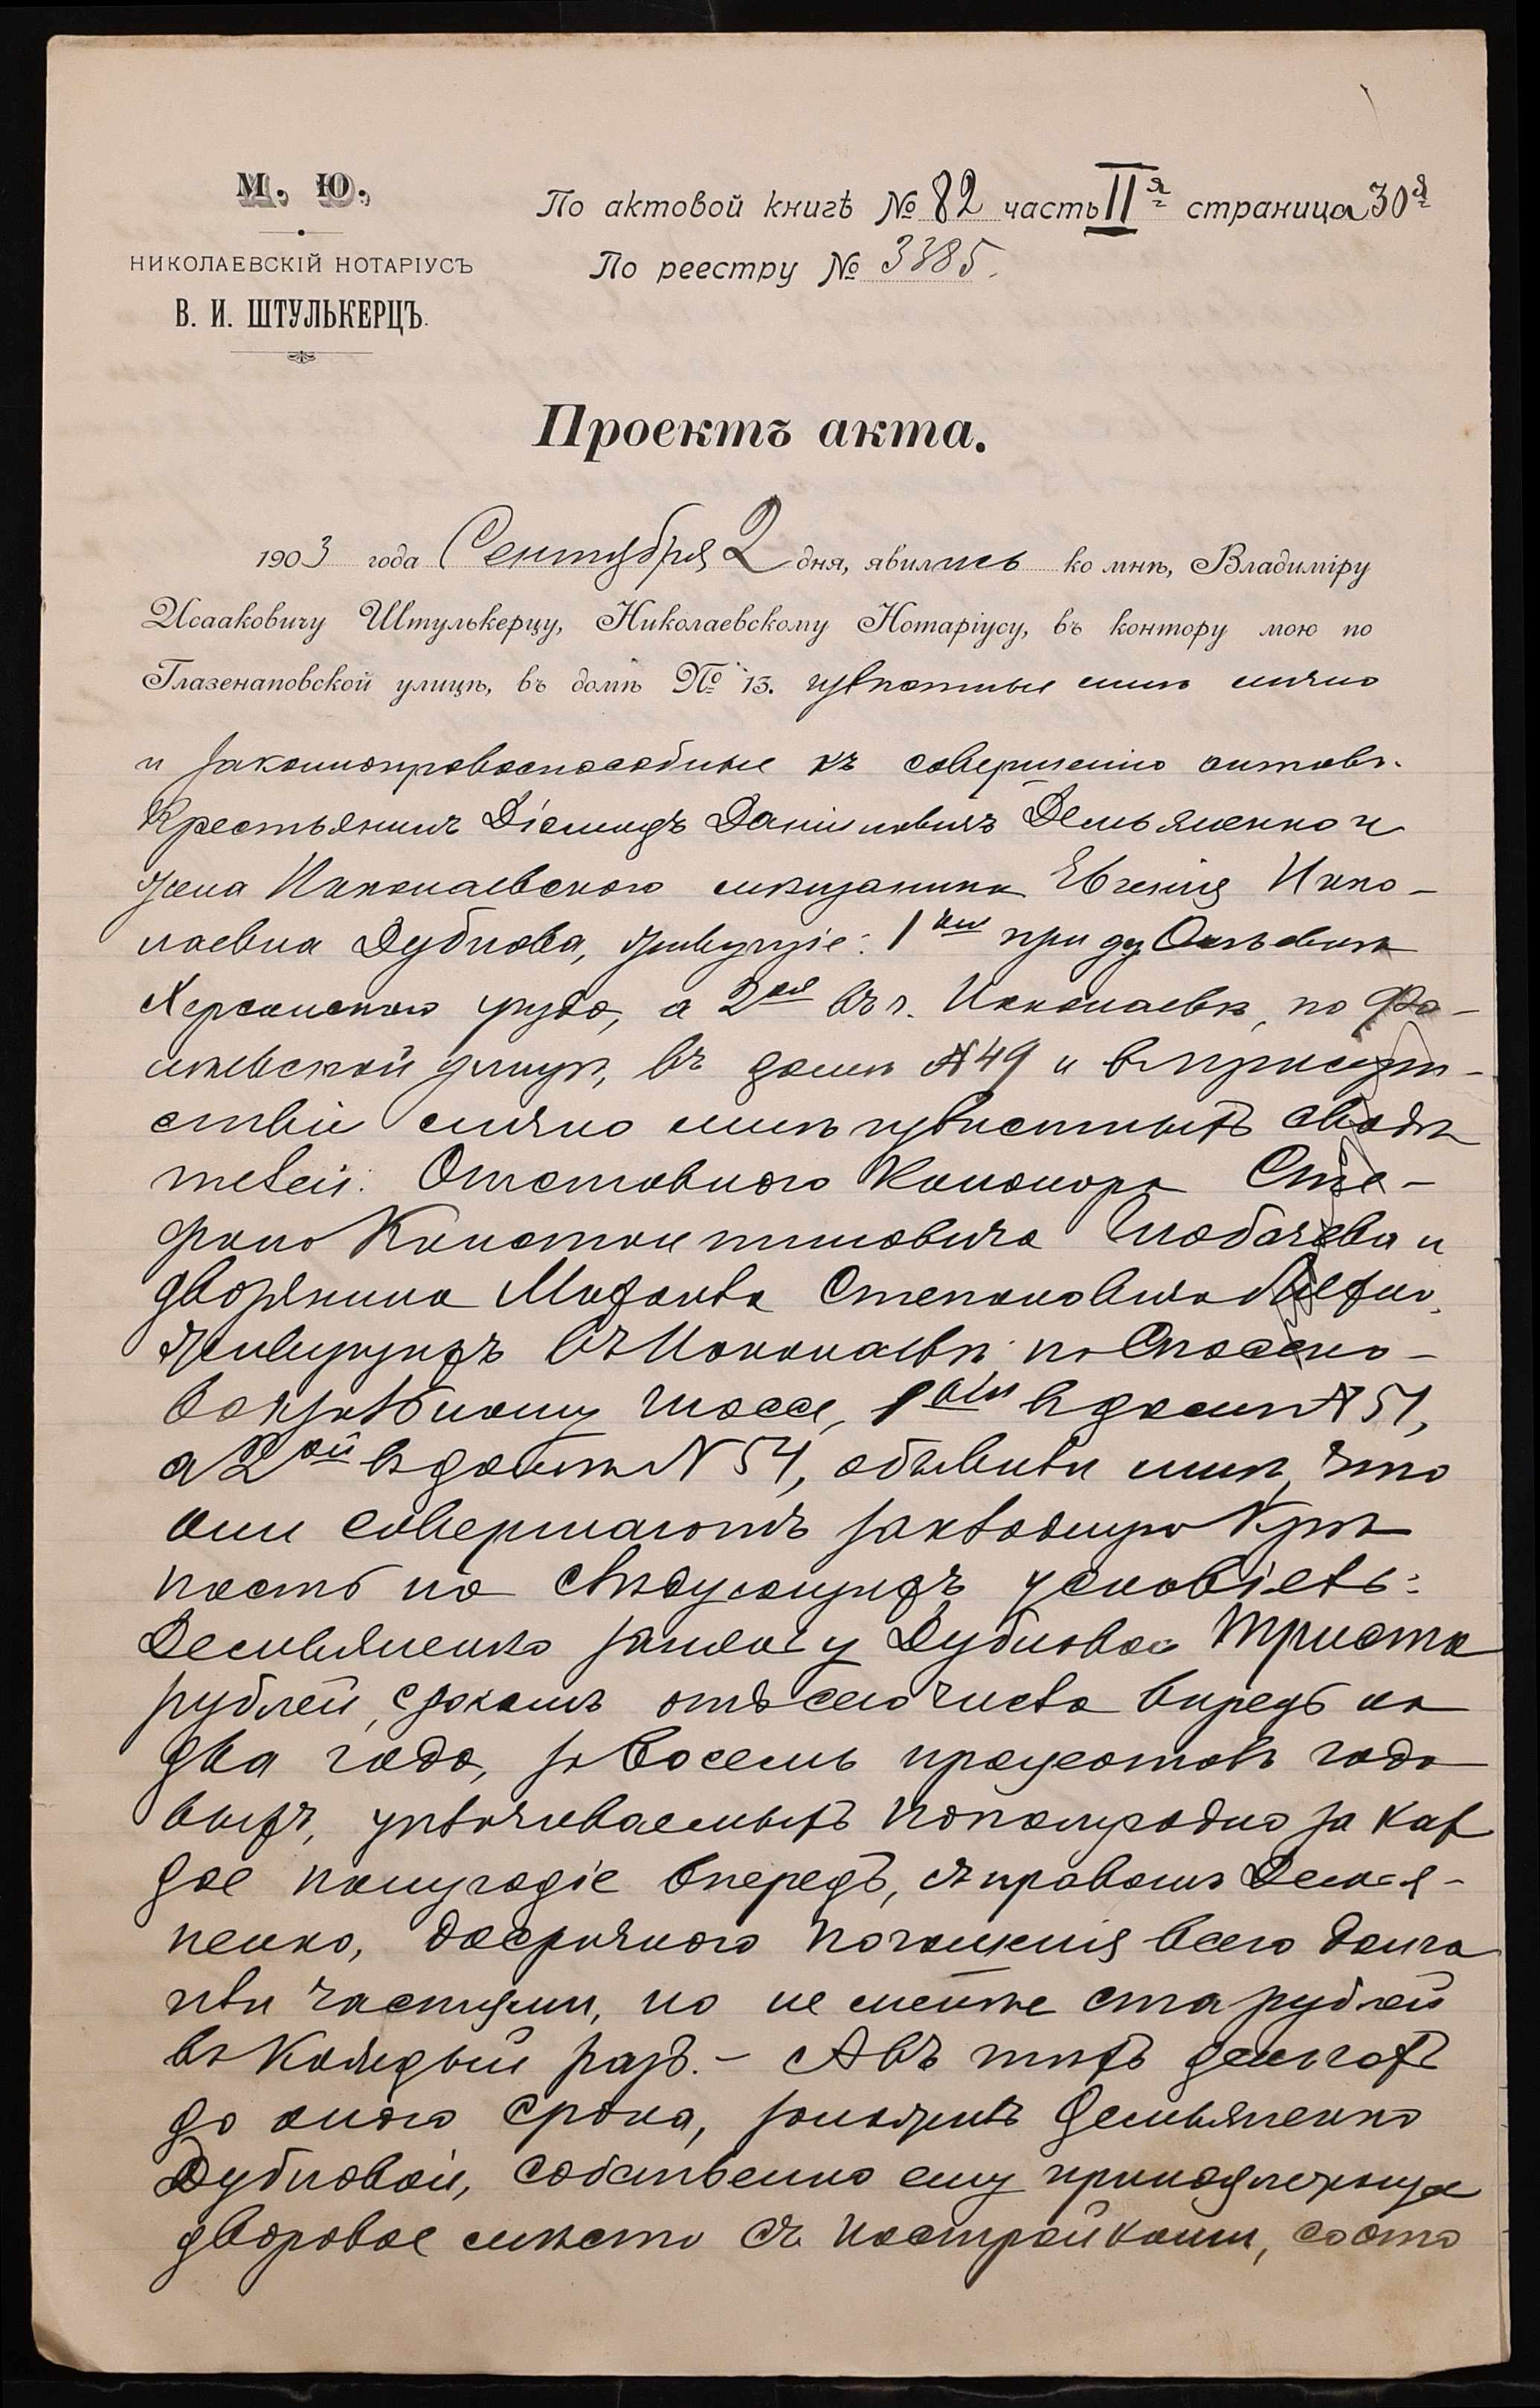 М. Ю.
НИКОЛАЕВСКІЙ НОТАРІУСЪ
В. И. ШТУЛЬКЕРЦЪ.
По актовой книгѣ № 82 часть II я страница 30 я
По реестру № 3385.
Проектъ акта.
1903 года Сентября 2 дня, явились ко мнѣ, Владиміру
Исааковичу Штулькерцу, Николаевскому Нотаріусу, въ контору мою по
Глазенаповской улицѣ, въ домѣ № 13. извѣстные мнѣ лично
и законноправоспособные къ совершенію актовъ.
Крестьянинъ Даниловичъ Демьяненко и
жена Николаевскаго мѣщанина Евгенія Нико-
лаевна Дубнова, живущіе: 1ый при
Херсонскаго уѣзда, а 2ая въ г. Николаевѣ, по Фа-
лѣевской улицѣ, въ домѣ № 49 и въ присут-
ствіи лично мнѣ извѣстныхъ свидѣ
телей: Отставного Сте-
фана Константиновича и
дворянина Степановича
живущихъ въ Николаевѣ по Спасско-
му шоссе, 1ый въ домѣ № 51,
а 2ой въ домѣ № 54, объявили мнѣ, что
они совершаютъ закладную крѣ
пость на слѣдующихъ условіяхъ:
Демьяненко занялъ у Дубновой триста
рублей, срокомъ отъ сего числа впредь на
два года, за восемь процентовъ годо
выхъ, уплачиваемыхъ пополугодно за каж
дое полугодіе впередъ, съ правомъ Демья-
ненко, досрочного погашенія всего долга
или частями, но не менѣе ста рублей
въ каждый разъ. – А въ тѣхъ деньгахъ
до оного срока, заложилъ Демьяненко
Дубновой, собственно ему принадлежащее
дворовое мѣсто съ постройками, состо